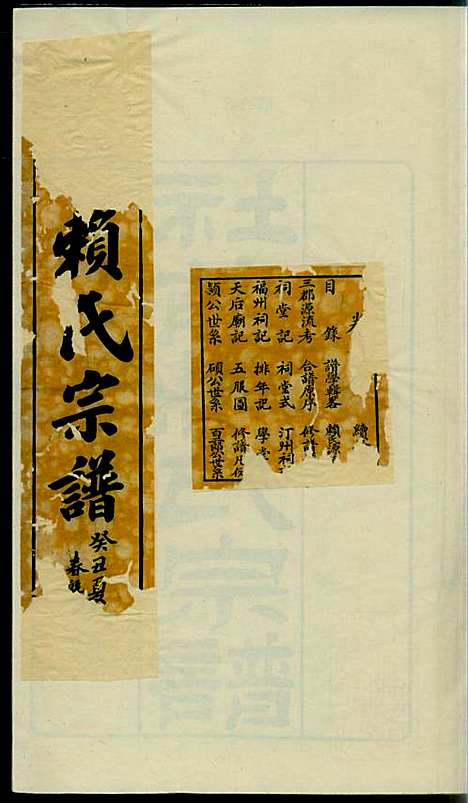 賴氏宗譜
癸丑夏
春
目錄 讚學輯畧 賴 續
三郡源流考 合譜原序 修譜
祠堂記 祠堂式 汀州祠
福州祠記 排年記 學
天后廟記 五服圖 修譜凡
潁公世系 碩公世系 世系